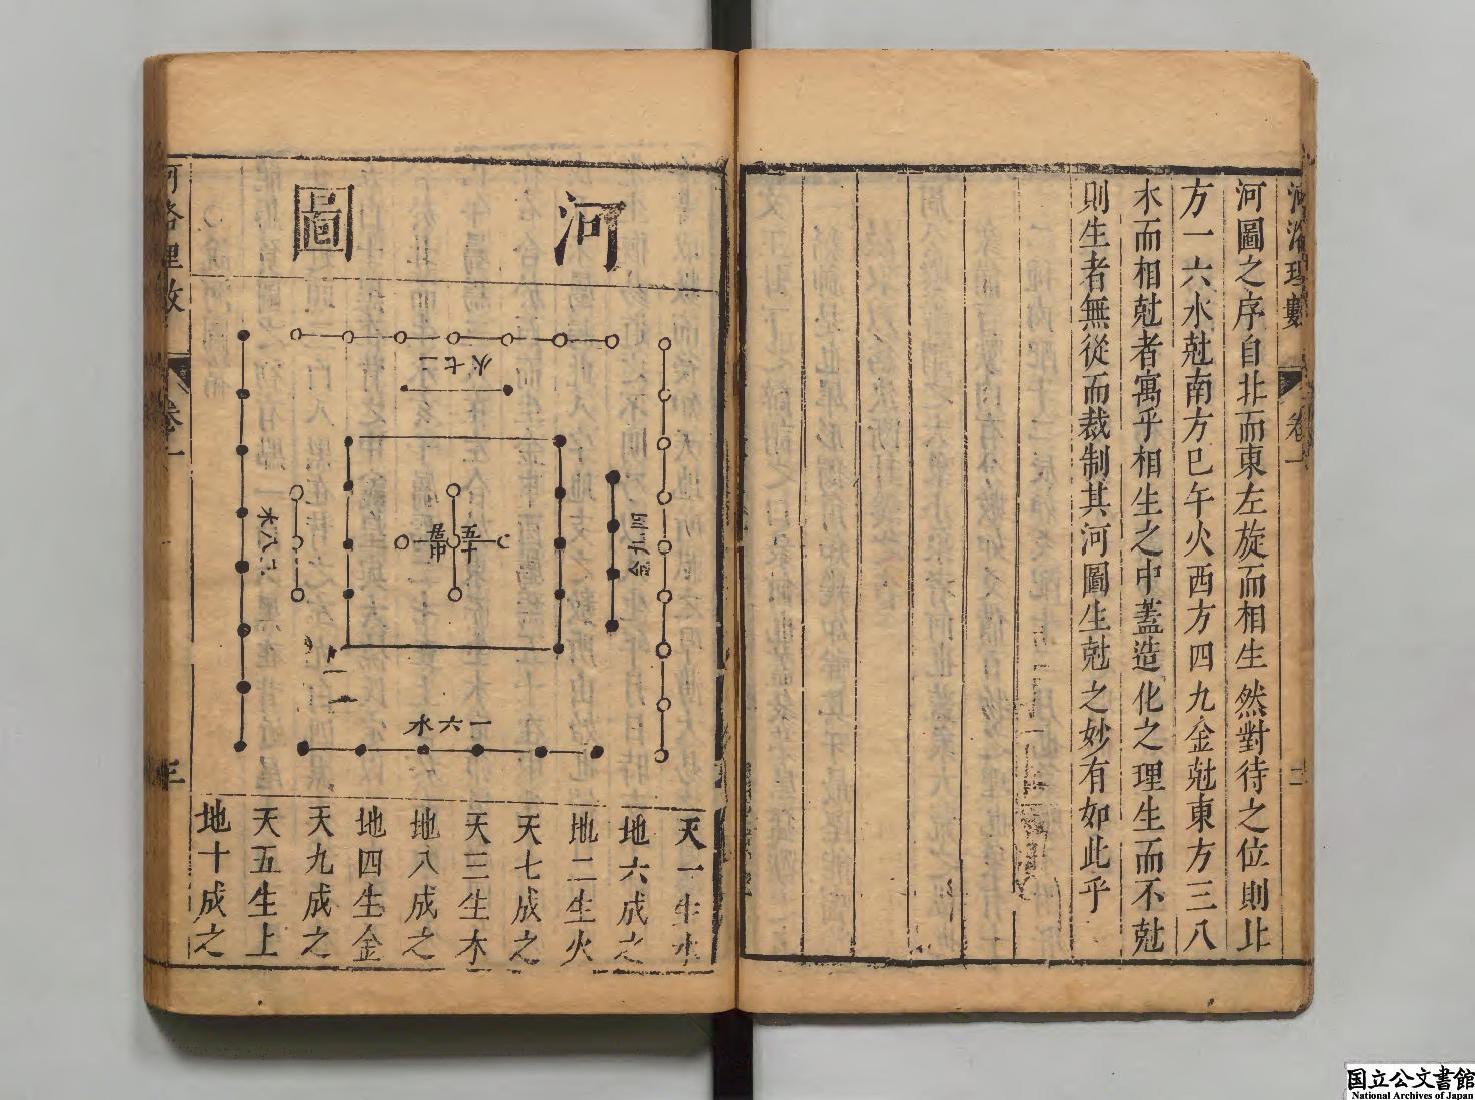 河洛理數
卷一
二
河圖之序自北而東左旋而相生然對待之位則北
方一六水尅南方巳午火西方四九金尅東方三八
木而相尅者寓乎相生之中蓋造化之理生而不尅
則生者無從而裁制其河圖生尅之妙有如此乎
河圖
火七二
木八三
金九四
五十
水六一
天一生水
地六成之
地二生火
天七成之
天三生木
地八成之
地四生金
天九成之
天五生上
地十成之
河洛理数
卷一
三
国立公文書館
National Archives of Japan